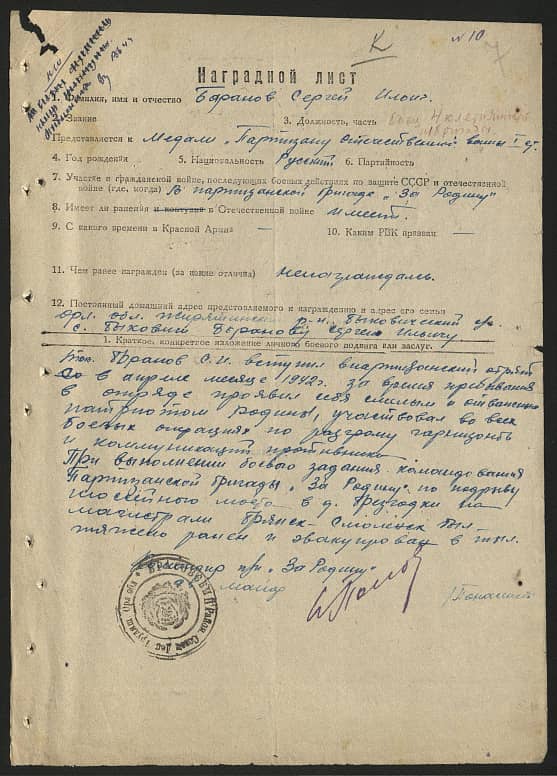 К
№10
7
Наградной лист
1. Фамилия, имя и отчество Баранов Сергей Ильич.
2. Звание 3. Должность, часть боец
Представляется к Медали "Партизану Отечественной войны I ст.
4. Год рождения 5. Национальность Русский 6. Партийность
7. Участие в гражданской войне, последующих боевых действиях по защите СССР и отечественной
войне (где, когда) В партизанской бригаде "За Родину"
8. Имеет ли ранения и контузии в Отечественной войне имеет.
9. С какого времени в Красной Армии — 10. Каким РВК призван —
11. Чем ранее награжден (за какие отличия) ненагражден.
12. Постоянный домашний адрес представляемого к награждению и адрес его семьи
орл. обл. Жирятинский р-н. Быковичский с/с.
с. Быковичи Сергей Ильич
1. Краткое, конкретное изложение личного боевого подвига или заслуг.
тов. С.И. вступил в партизанский отряд
в апреле месяце 1942 г. за время пребывания
в отряде проявил себя смелым и отважным
патриотом Родины, участвовал во всех
боевых операциях по разгрому гарнизонов
и коммуникаций противника.
При выполнении боевого задания командования
Партизанской бригады "За Родину" по подрыву
моста в д. на
магистрали Брянск-Смоленск был
тяжело ранен и эвакуирован в тыл.
Командир п/бр "За Родину"
майор